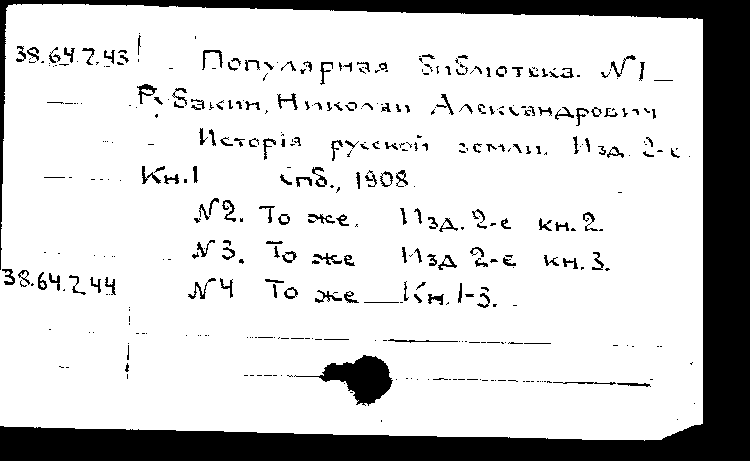 38.64.7.43 Популярная библиотека. N 1
Рубакин, Николай Александрович
Исторія русской земли. Изд. 2-е.
Кн. 1 Спб., 1908
N 2. То же. Изд. 2-е кн. 2.
N 3. То же Изд 2-е кн. 3.
38.64.7.44 N 4 То же Кн. 1-3.